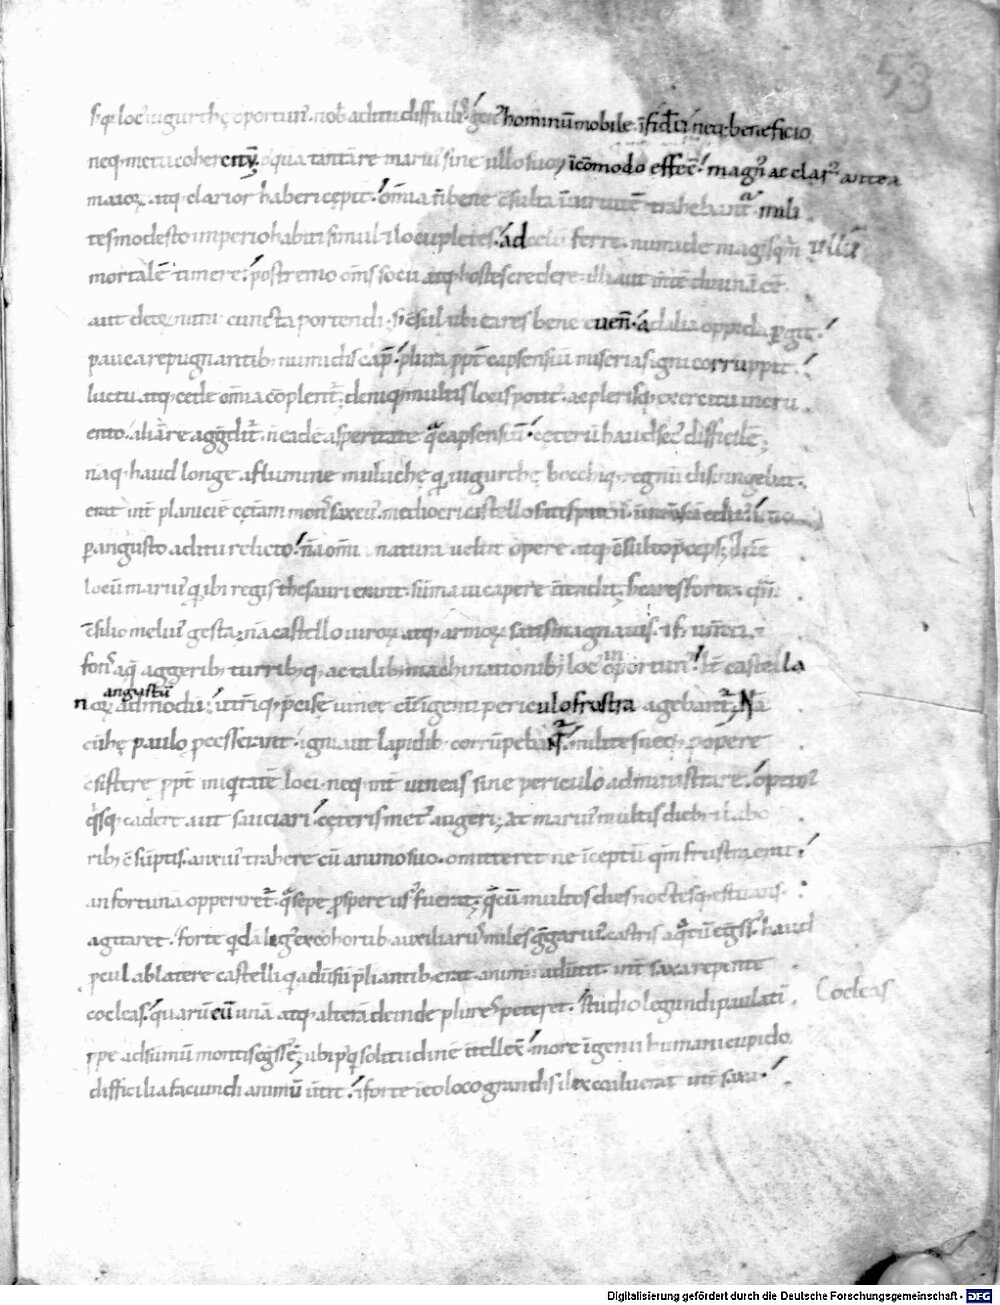 53
sꝗ loc᷒ iugurthę oportun᷒. nob̄ aditu difficil᷒. gen᷒ hominū mobile. īfidū neq; beneficio
neq; metu coherenſ. qua tantā re mari᷒ sine ullo suoꝝ īcōmodo effec̄. magn᷒ at clar᷒ antea
maioꝝ. atq; clarior haberi cępit. om̄ia n̄ bene c̄sulta ī uirtutē trahebant᷒. mili
tes modesto imperio habiti simul ⁊ locupletes. ad celū ferre. numide magis qm̄ ullū
mortalē timere. postremo om̄s socii atq; hostes credere. illi aut mētē diuinā eē.
aut deoꝝ nutu cuncta portendi. s; c̄sul ubi ea res bene euen̄. ad alia oppida ꝑgit.
pauca repugnantib; numidis cap̄. plura ꝓpt̄ capsensiū miserias igni corruppit.
luctu atq; cede om̄ia cōplent᷒. deniq; multis locis potit᷒. ac plerisq; exercitu incru
ento. aliā rē aggdit᷒. n̄ eadē asperitate qa capsensiū. cęterū haud sec᷒ difficilē;
nāq; haud longe a flumine muluchę qd iugurthę bocchiq; regnū disiungebat.
erat int̄ planiciē cętam mons saxeu᷒. mediocri castello satis patens
ꝑangusto aditu relicto. nā om̄i natura uelut opere atq; c̄sulto p̄ceps;
locū mari᷒ qd ibi regis thesauri erant. sūma ui capere intendit; s; ea res forte. qm̄
c̄silio meli᷒ gesta; nā castello uiroꝝ atq; armoꝝ satis magna uis.
fons aq̄ aggerib; turrib; q; ac taliis machinationib; loc᷒ inoportun᷒. it̄ castella
noꝝ angustū admodū; utriq; p̄cise uineę cū ingenti periculo frostra agebant᷒. Nā
cū hę paulo ꝓcesserant. igni aut lapidib; corrūpebant᷒. milites neq; ꝓ opere
c̄sistere ꝓpt̄ iniqitatē loci. neq; int̄ uineas sine periculo administrare. optim᷒
qsq; cadere aut sauciari. cęteris met᷒ augeri; At mari᷒ multis dieb; ⁊ labo
rib; c̄sūptis. anxi᷒ trahere cū animo suo. omitteret ne īceptū qm̄ frustra erat.
an fortunā opperiret᷒. q̄ sępe ꝓspere us᷒ fuerat. q̄ cū multos dies noctesq; estuans.
agitaret. forte qdā lig᷒ ex cohortib; auxiliariis miles ggari᷒ castris aqtū egss᷒. haud
ꝓcul ab latere castelli qd adūsū p̄liantib; erat. animū aduertit int̄ saxa repente
cocleas. quarū cū unā atq; alterā deinde plures peteret. studio legundi paulatī.
Cocleas
ꝓpe ad sūmū montis egss᷒ ē; ubi pq solitudinē itellex̄. more īgenii humani cupido
difficilia facundi animū ūtit. ⁊ forte ī eo loco grandis ilex coaluerat int̄ saxa.
Digitalisierung gefördert durch die Deutsche Forschungsgemeinschaft - DFG